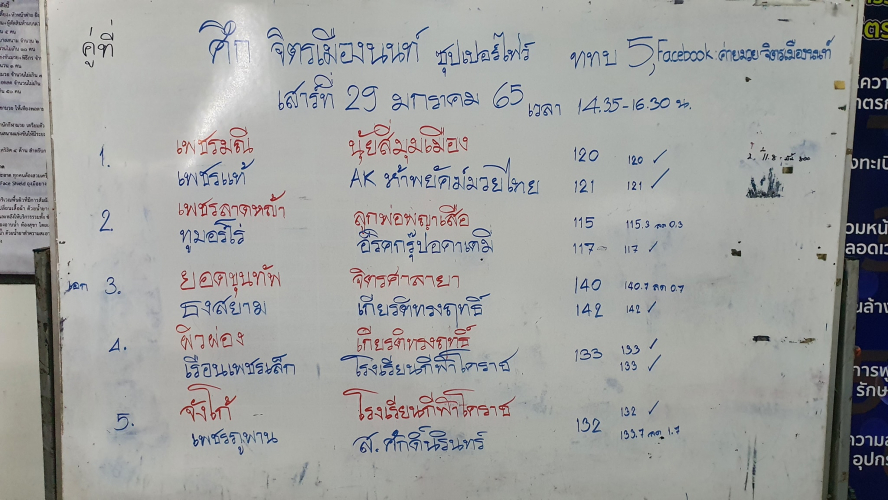 คู่ที่ ศึก จิตรเมืองนนท์ ซุปเปอร์ไฟว์ ททบ 5, Facebook: ค่ายมวย จิตรเมืองนนท์
เสาร์ที่ 29 มกราคม 65 เวลา 14.35-16.30 น.
1. เพชรมณี นุ้ยสี่มุมเมือง 120 120 ✓
เพชรแท้ AK ห้าพยัคฆ์มวยไทย 121 121 ✓
2. เพชรลาดหญ้า ลูกพ่อพญาเสือ 115 115.3 ลด 0.3
ทูมอร์โร่ อีริคกรุ๊ปอคาเดมี่ 117 117 ✓
เอก 3. ยอดขุนทัพ จิตรศาลายา 140 140.7 ลด 0.7
ธงสยาม เกียรติทรงฤทธิ์ 142 142 ✓
4. ผิวผ่อง เกียรติทรงฤทธิ์ 133 133 ✓
เรือนเพชรเล็ก โรงเรียนกีฬาโคราช 133 ✓
5. จังโก้ โรงเรียนกีฬาโคราช 132 132 ✓
เพชรภูพาน ส.ศักดิ์นรินทร์ 133.7 ลด 1.7